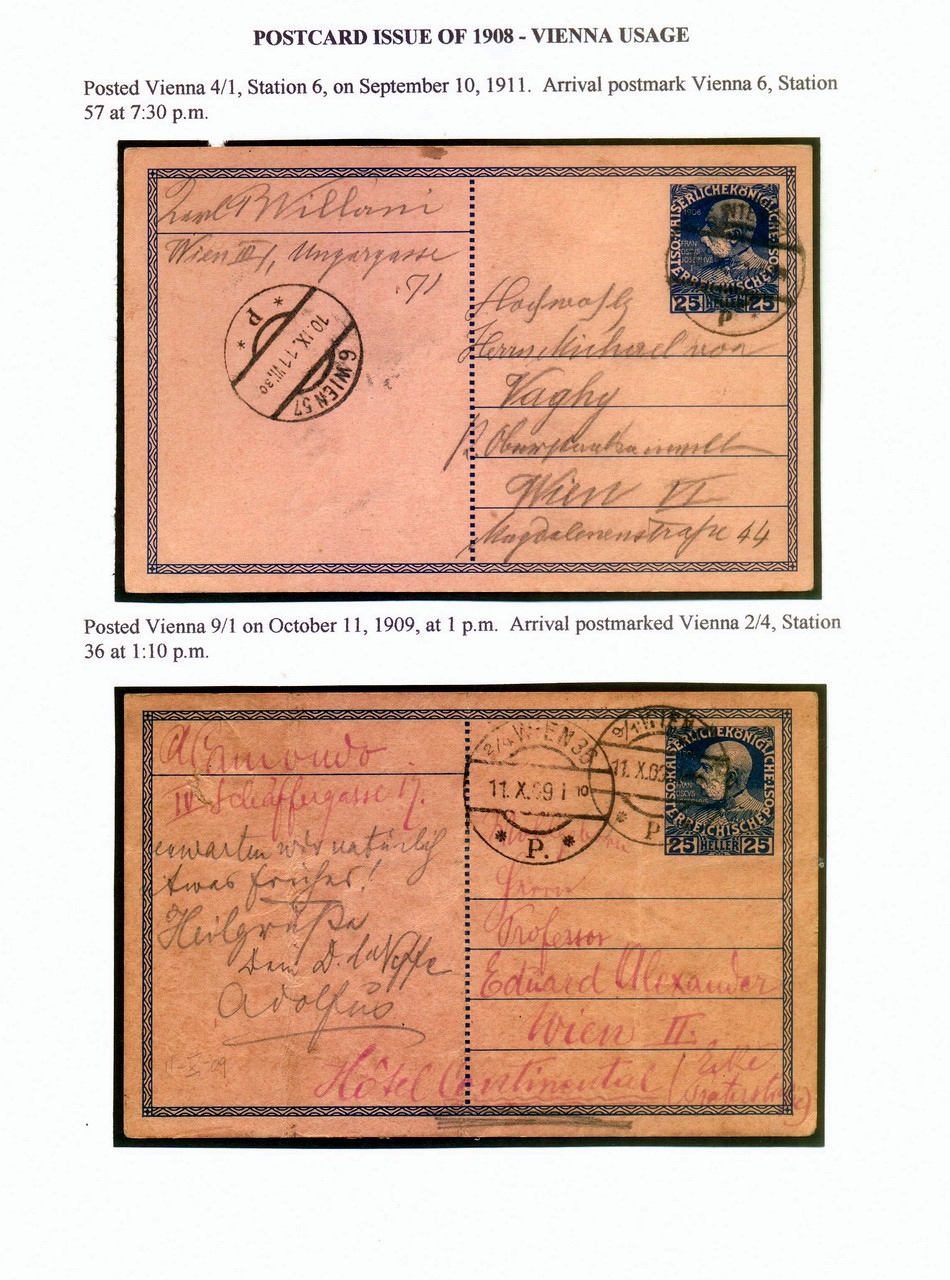 POSTCARD ISSUE OF 1908 - VIENNA USAGE
Posted Vienna 4/1, Station 6, on September 10, 1911. Arrival postmark Vienna 6, Station
57 at 7:30 p.m.
Karl B Willani
Wien III/1, Ungargasse
71
P
10.IX.11 VII 30
6 WIEN 57
KAISERLICHEKÖNIGLICHE
1908
FRAN
IOSEPHVS
25 HELLER 25
P
Hochwohlg
Herrn Michael von
Vaghy
Wien VI
Magdalenenstraße 44
Posted Vienna 9/1 on October 11, 1909, at 1 p.m. Arrival postmarked Vienna 2/4, Station
36 at 1:10 p.m.
IV Schäffergasse 17.
erwarten wir natürlich
etwas früher!
Heilgrüße
Dein D. l. Neffe
Adolfus
11-X-09
2/4 WIEN 36
11.X.09 1 10
P.
9/1 WIEN
11.X.09
P
KAISERLICHEKÖNIGLICHE
ÖSTERREICHISCHEPOST
25 HELLER 25
Herrn
Professor
Eduard Alexander
Wien II.
Hôtel Continental (Ecke
Praterstraße)